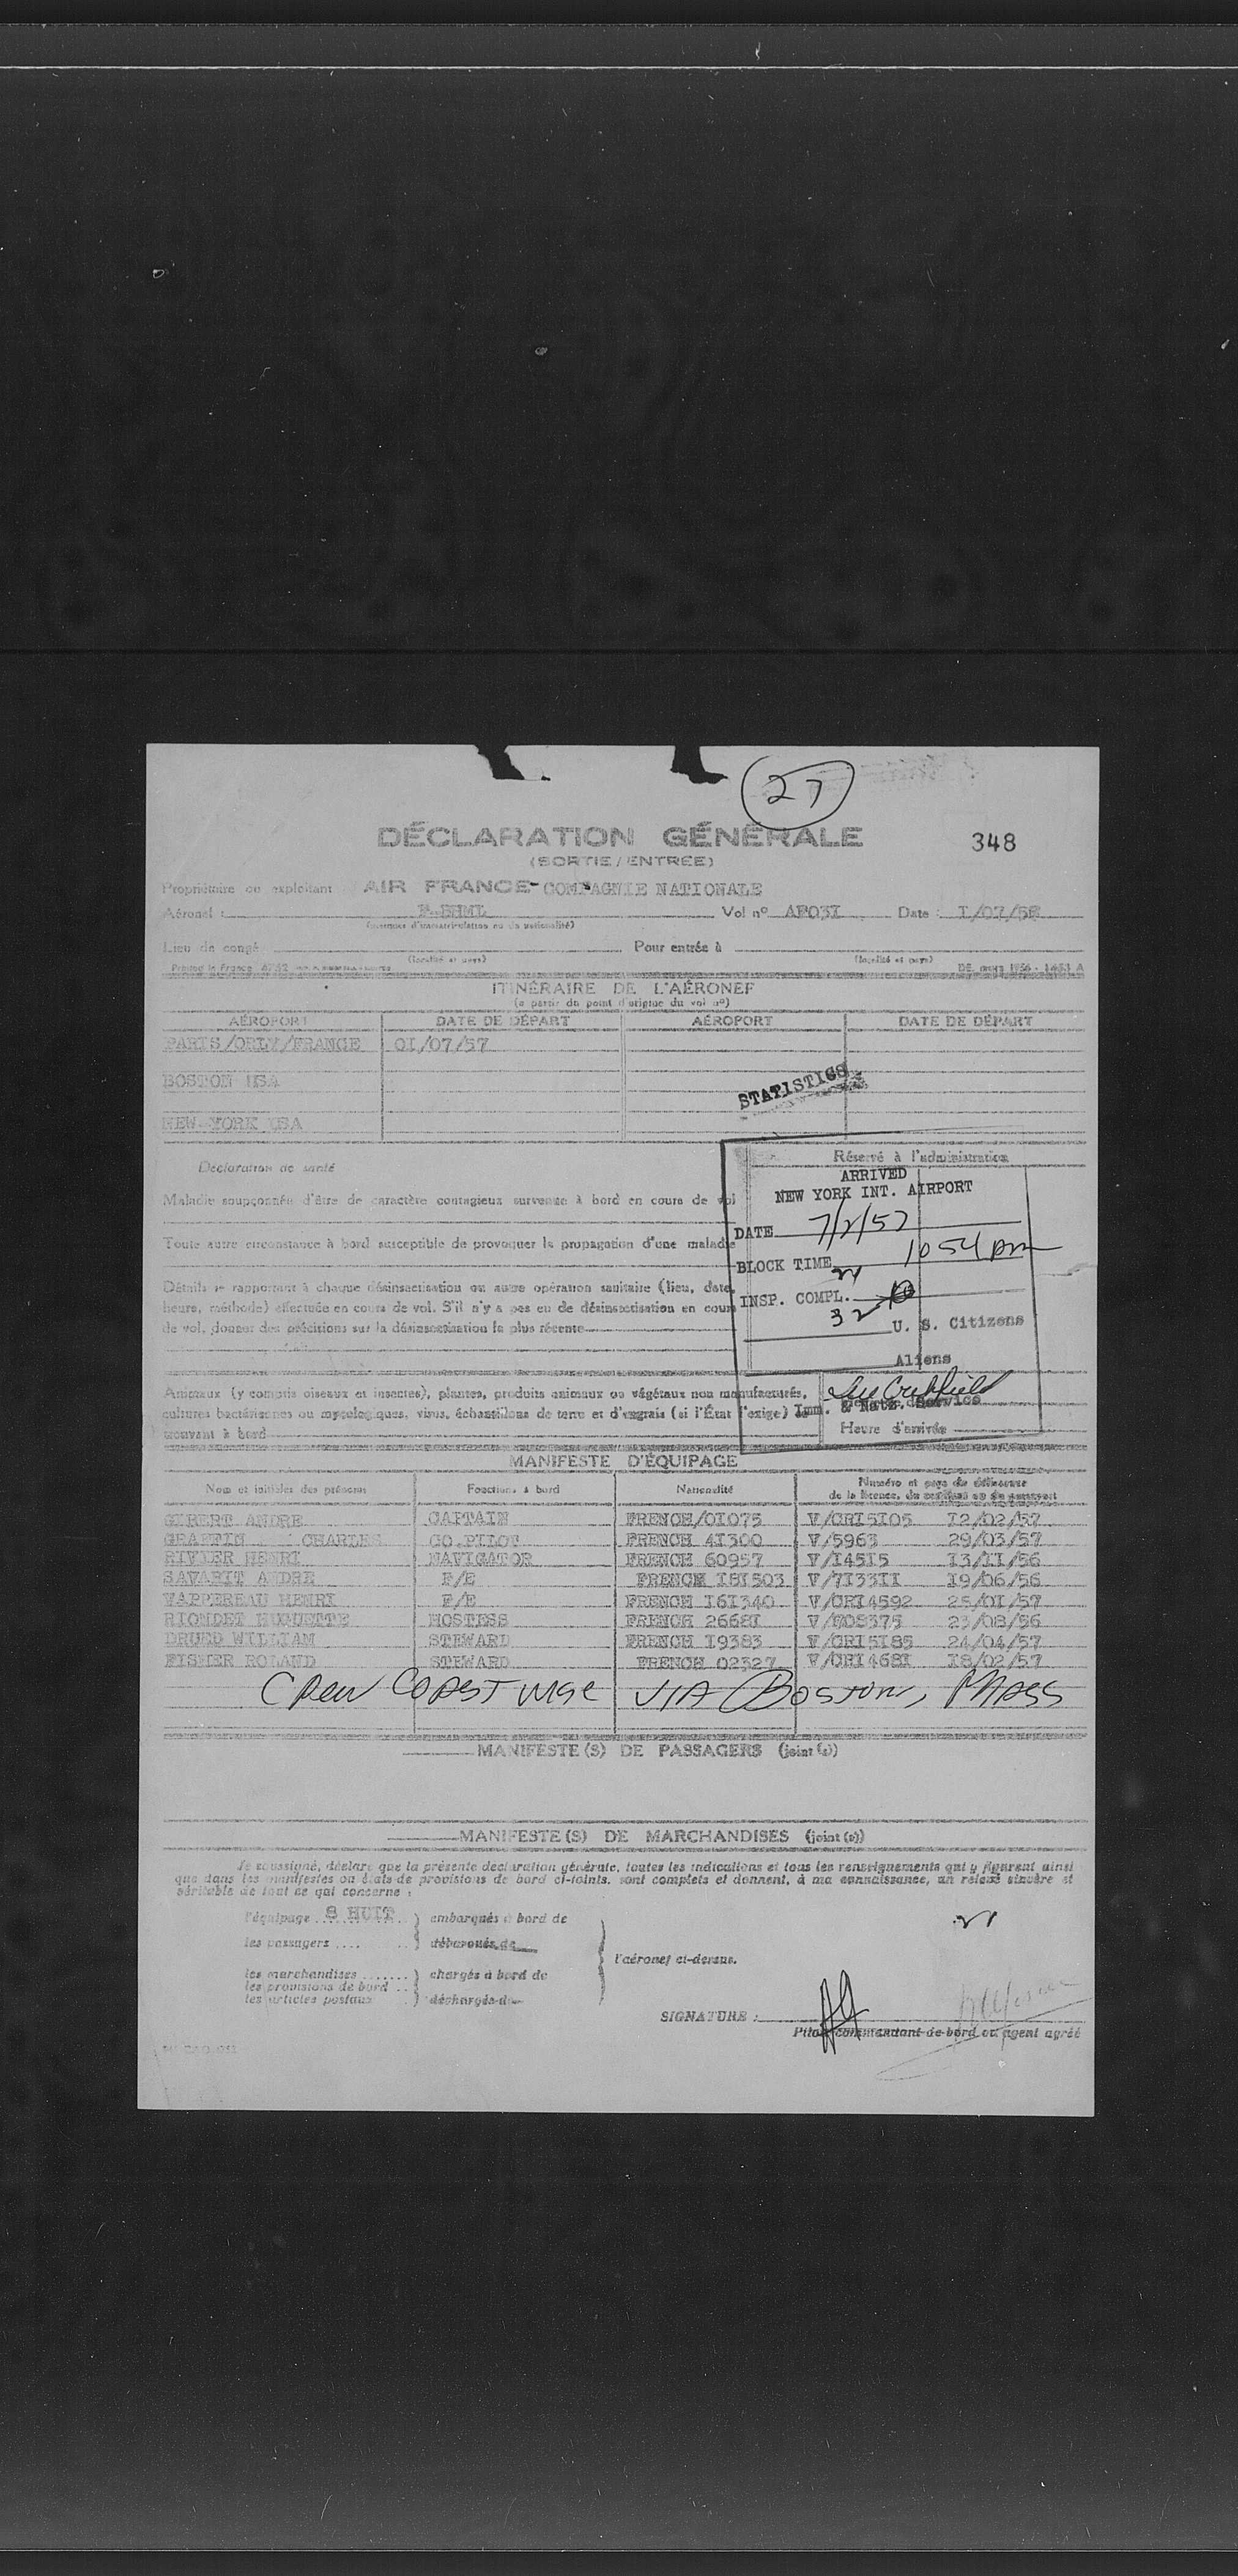 27
DÉCLARATION GÉNÉRALE
348
(SORTIE/ENTRÉE)
Propriétaire ou exploitant AIR FRANCE - COMPAGNIE NATIONALE
Aéronef : Vol nº AF031 Date :
Lieu de congé Pour entrée à
(localité et pays) (localité et pays)
ITINÉRAIRE DE L'AÉRONEF
(a partir du point d'origine du vol nº)
AÉROPORT DATE DE DÉPART AÉROPORT DATE DE DÉPART
PARIS/ORLY/FRANCE 0I/07/57
BOSTON USA
STATISTICS
NEW-YORK USA
Déclaration de santé
Réservé à l'administration
ARRIVED
NEW YORK INT. AIRPORT
Maladie soupçonnée d'être de caractère contagieux survenue à bord en cours de vol
DATE 7/2/57
Toute autre circonstance à bord susceptible de provoquer la propagation d'une maladie
BLOCK TIME 10 54 pm
Détails se rapportant à chaque désinsectisation ou autre opération sanitaire (lieu, date,
INSP. COMPL.
heure, méthode) effectuée en cours de vol. S'il n'y a pas eu de désinsectisation en cours
32
U. S. Citizens
de vol, donner des précisions sur la désinsectisation la plus récente
Aliens
Animaux (y compris oiseaux et insectes), plantes, produits animaux ou végétaux non manufacturés,
cultures bactériennes ou mycologiques, virus, échantillons de terre et d'engrais (si l'État l'exige)
Imm. & Natz. Service
trouvant à bord
Heure d'arrivée
MANIFESTE D'ÉQUIPAGE
Nom et initiales des prénoms Fonctions à bord Nationalité Numéro et pays de délivrance
de la licence, du certificat ou du passeport
GIBERT ANDRE CAPTAIN FRENCH/01075 V/CRI5I05 I2/02/57
GRAFFIN CHARLES CO.PILOT FRENCH 4I300 V/5963 29/03/57
RIVIER HENRI NAVIGATOR FRENCH 60957 V/I45I5 I3/II/56
SAVARIT ANDRE F/E FRENCH I8I503 V/7I33II I9/06/56
VAPPEREAU HENRI F/E FRENCH I6I340 V/CRI4592 25/0I/57
RIONDET HUGUETTE HOSTESS FRENCH 2668I 23/08/56
DRUED WILLIAM STEWARD FRENCH I9383 V/CRI5I85 24/04/57
FISHER ROLAND STEWARD FRENCH 02327 V/CRI468I I8/02/57
Crew Coastwise VIA Boston, Mass
MANIFESTE(S) DE PASSAGERS (joint(s))
MANIFESTE(S) DE MARCHANDISES (joint(s))
Je soussigné, déclare que la présente déclaration générale, toutes les indications et tous les renseignements qui y figurent ainsi
que dans les manifestes ou états de provisions de bord ci-joints, sont complets et donnent, à ma connaissance, un relevé sincère et
véritable de tout ce qui concerne :
l'équipage 8 HUIT embarqués à bord de
les passagers débarqués de
l'aéronef ci-dessus.
les marchandises chargés à bord de
les provisions de bord
les articles postaux déchargés de
SIGNATURE :
Pilote commandant de bord ou agent agréé